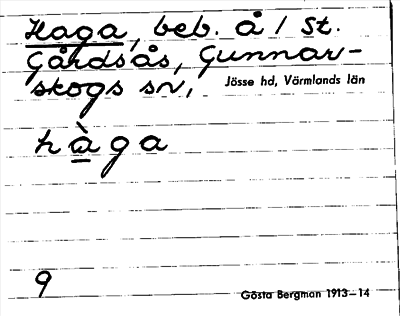 Haga, beb. å 1 St.
Gårdsås, Gunnar-
skogs sn,
Jösse hd, Värmlands län
hàga
9
Gösta Bergman 1913–14